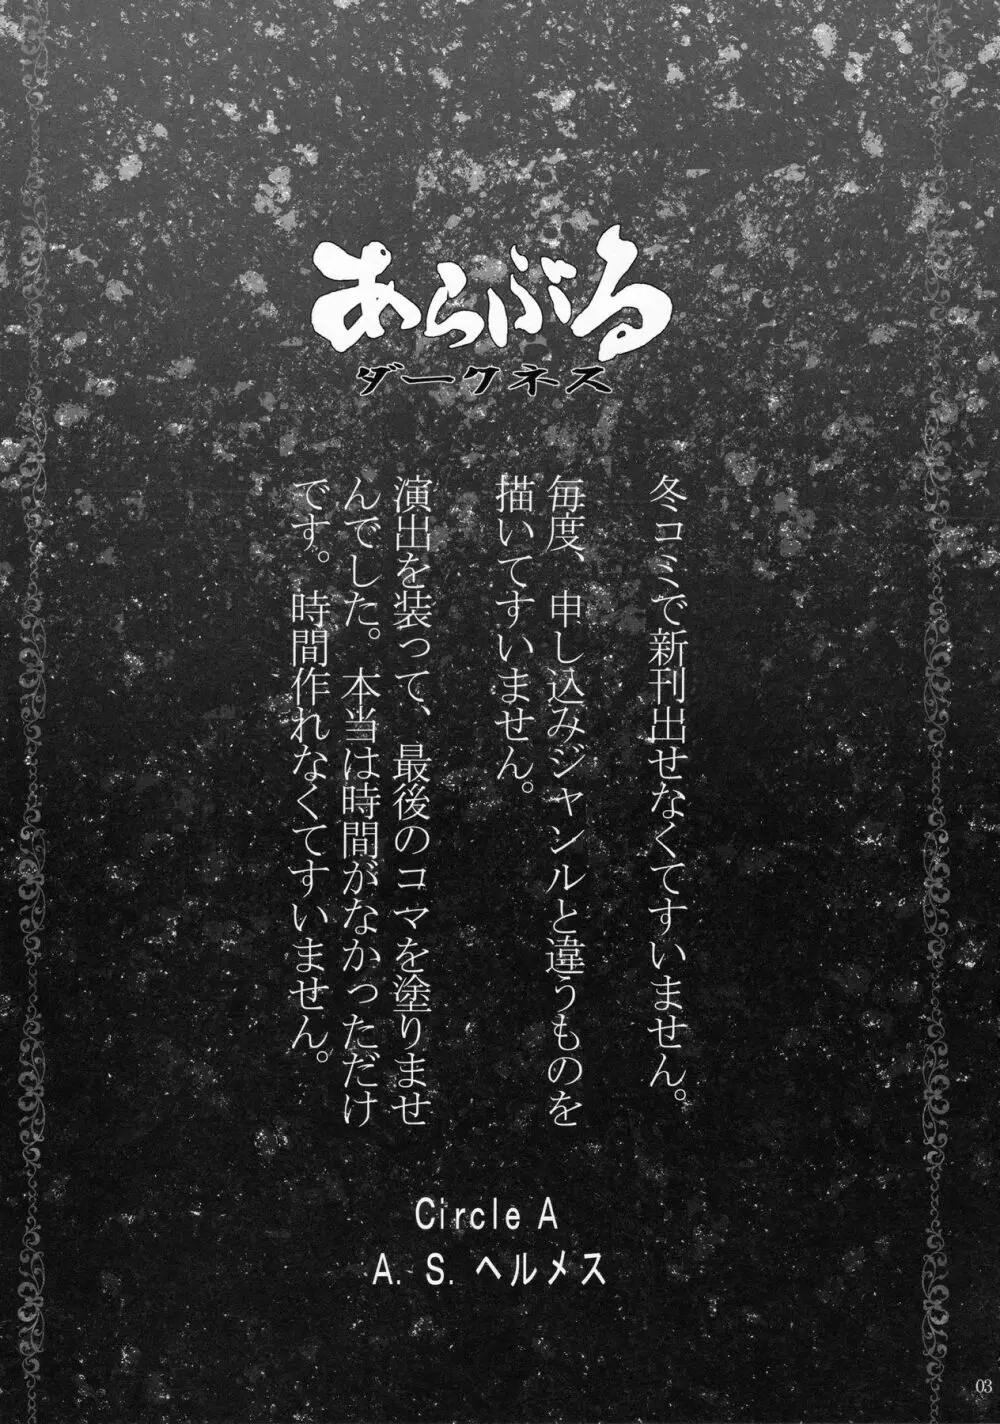 あらぶる
ダークネス
冬コミで新刊出せなくてすいません。
毎度、申し込みジャンルと違うものを
描いてすいません。
演出を装って、最後のコマを塗りませ
んでした。本当は時間がなかっただけ
です。時間作れなくてすいません。
Circle A
A. S. ヘルメス
03